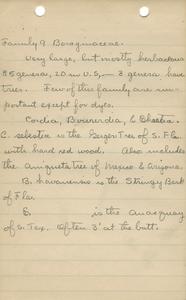 Family 9 Boraginaceae.
Very large, but mostly herbaceous
85 genera, 20 in U.S, – 3 genera have
trees. Few of this family are im-
portant except for dyes.
Cordia, Bourreria, & Ehretia.
C. sebestena is the Geiger Tree of S. Fla.
with hard red wood. Also includes
the anaqueta tree of Mexico & Arizona.
B. havanensis is the Strongy Bark
of Fla.
E. is the anacquay
of S. Tex. Often 3' at the butt.